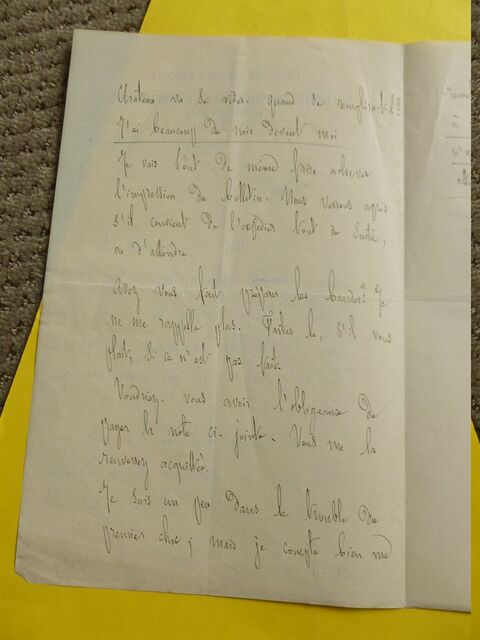 Château va se vider. quand se remplira-t-il?
J'ai beaucoup de noir devant moi
Je vais tout de même faire achever
l'impression du bulletin. Nous verrons après
s'il convient de l'expédier tout de suite,
ou d'attendre.
Avez vous fait préparer les bandes? Je
ne me rappelle plus. Faites le, s'il vous
plait, si ce n'est pas fait.
Voudriez-vous avoir l'obligeance de
payer la note ci-jointe. Vous me la
renverrez acquittée.
Je suis un peu dans le trouble du
premier choc; mais je compte bien me
à